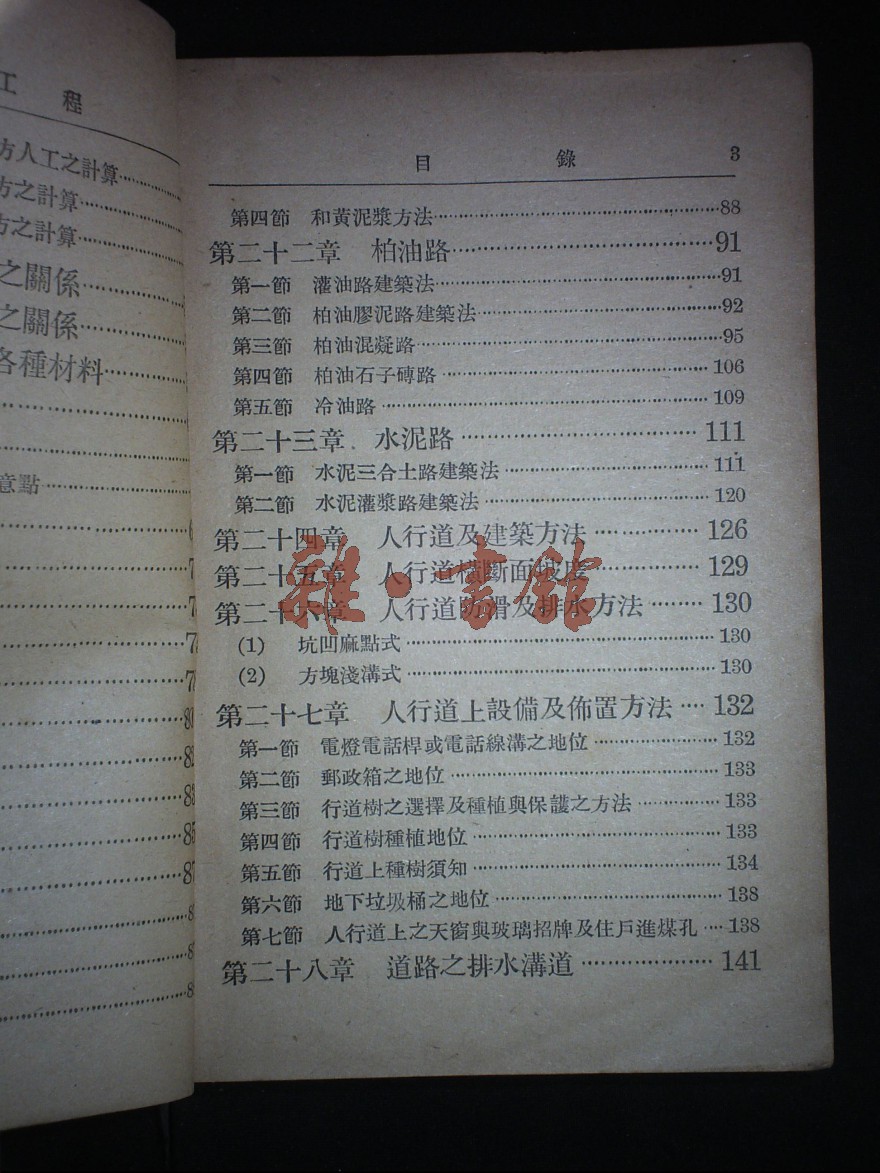 工程
方人工之計算
方之計算
方之計算
之關係
之關係
各種材料
意點
目錄 3
第四節 和黃泥漿方法 88
第二十二章 柏油路 91
第一節 灌油路建築法 91
第二節 柏油膠泥路建築法 92
第三節 柏油混凝路 95
第四節 柏油石子磚路 106
第五節 冷油路 109
第二十三章 水泥路 111
第一節 水泥三合土路建築法 111
第二節 水泥灌漿路建築法 120
第二十四章 人行道及建築方法 126
第二十五章 人行道橫斷面坡度 129
第二十六章 人行道防滑及排水方法 130
(1) 坑凹麻點式 130
(2) 方塊淺溝式 130
第二十七章 人行道上設備及佈置方法 132
第一節 電燈電話桿或電話線溝之地位 132
第二節 郵政箱之地位 133
第三節 行道樹之選擇及種植與保護之方法 133
第四節 行道樹種植地位 133
第五節 行道上種樹須知 134
第六節 地下垃圾桶之地位 138
第七節 人行道上之天窗與玻璃招牌及住戶進煤孔 138
第二十八章 道路之排水溝道 141
雜·書館